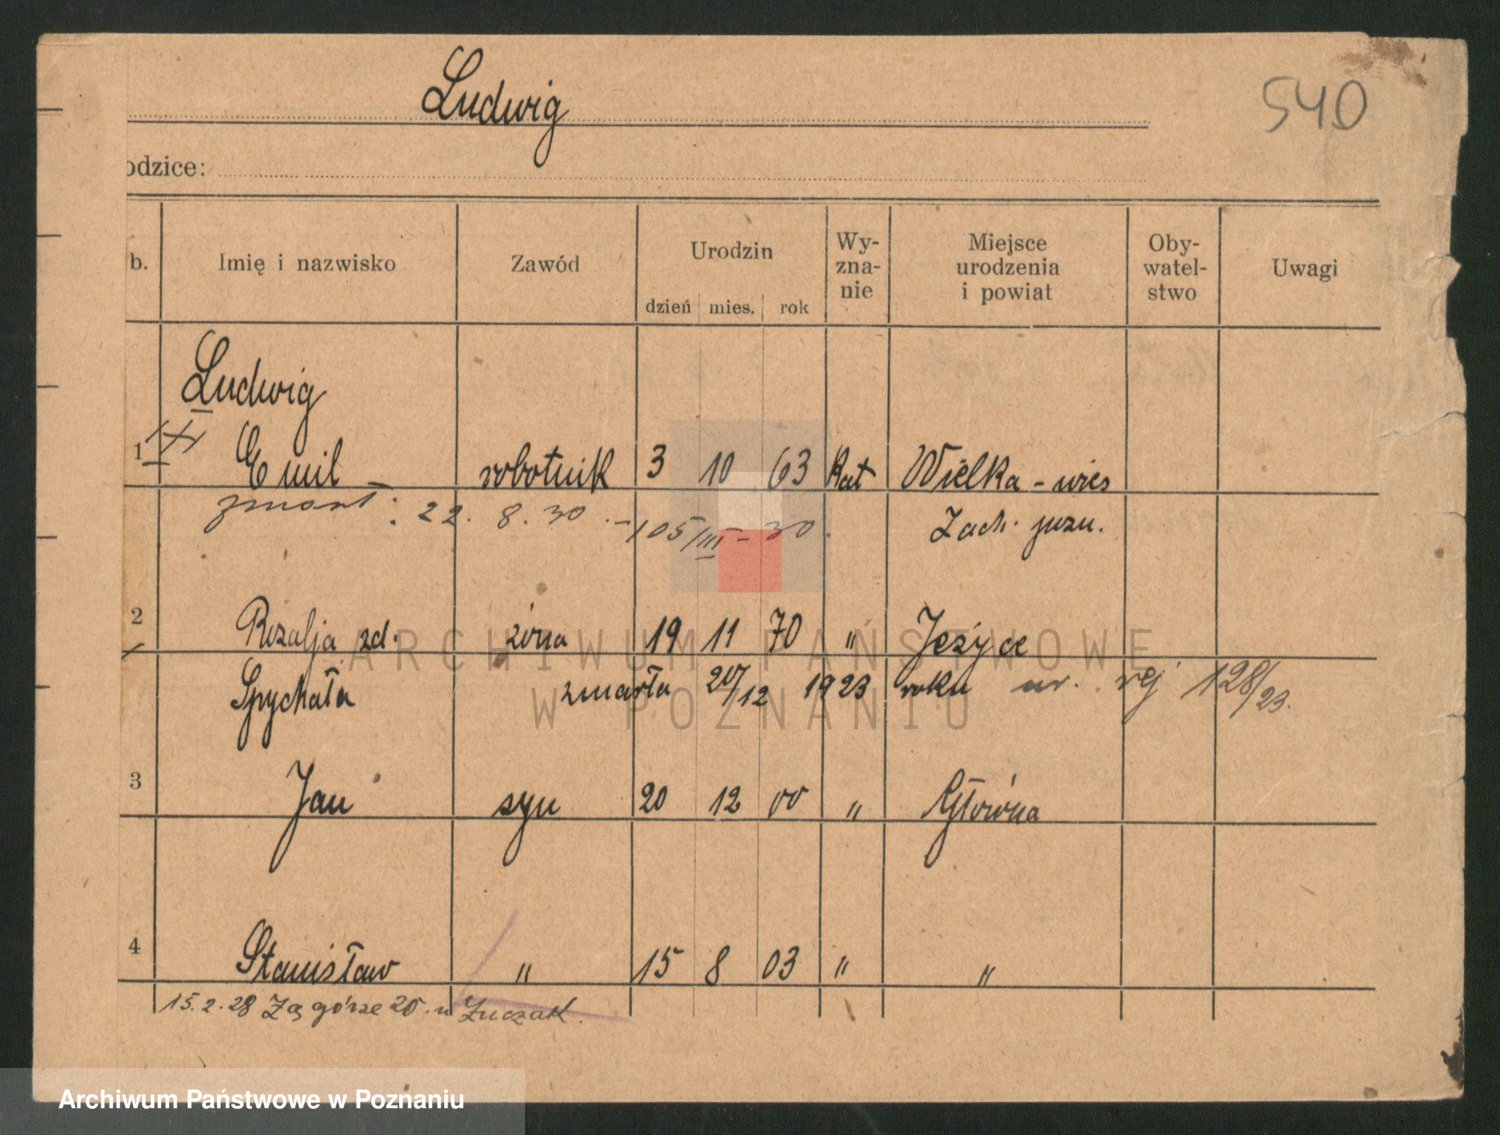 Ludwig
540
odzice:
b. Imię i nazwisko Zawód Urodzin dzień mies. rok Wy-zna-nie Miejsce urodzenia i powiat Oby-watel-stwo Uwagi
Ludwig
1 Emil robotnik 3 10 63 kat Wielka-wies
zmart: 22. 8. 30. - 105/III - 30.
Zach.
2 Rozalja zd. żona 19 11 70 " Jeżyce
Spychała zmarła 20/12 1923 roku nr. rej 128/23.
3 Jan syn 20 12 00 " Główna
4 Stanisław " 15 8 03 " "
15.2.28 Zagórze 20. u Łuczak.
ARCHIWUM PAŃSTWOWE
W POZNANIU
Archiwum Państwowe w Poznaniu